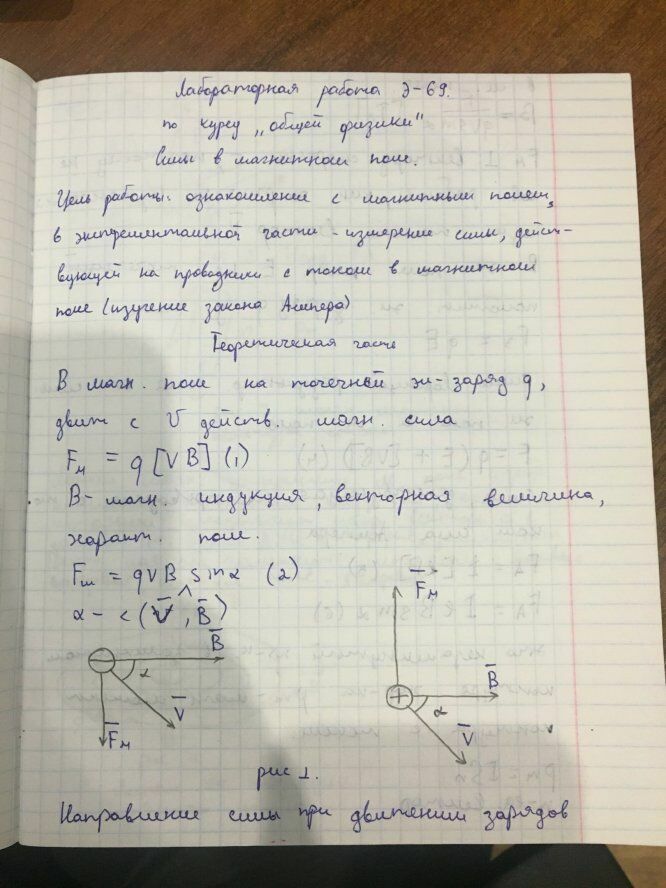 Лабораторная работа Э-69.
по курсу „общей физики"
Силы в магнитном поле.
Цель работы: ознакомление с магнитным полем,
в экспрементальной части - измерение силы, дейст-
вующей на проводники с током в магнитном
поле (изучение закона Ампера)
Теоретическая часть
В магн. поле на точечный эл-заряд q,
движ с V действ. магн. сила
Fм = q [VB] (1)
B - магн. индукция, векторная величина,
характ. поле.
Fм = qVB sinα (2)
α - <(V̅ ^, B̅)
B̅ α V̅ F̅м
F̅м B̅ α V̅
рис 1.
Направление силы при движении зарядов